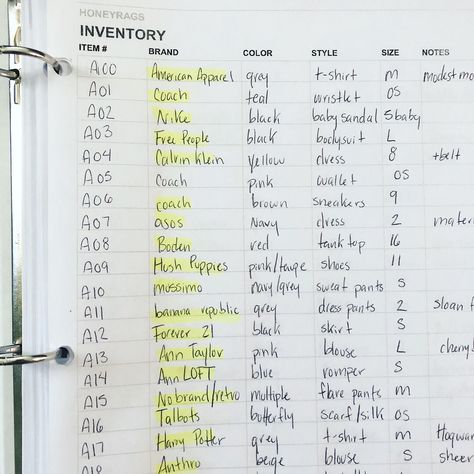 HONEYRAGS
INVENTORY
ITEM # BRAND COLOR STYLE SIZE NOTES
A00 American Apparel gray t-shirt m modest mo
A01 Coach teal wristlet OS
A02 Nike black baby sandal 5baby
A03 Free People black bodysuit L
A04 Calvin Klein yellow dress 8 +belt
A05 Coach pink wallet OS
A06 coach brown sneakers 9
A07 asos Navy dress 2 mater
A08 Boden red tank top 16
A09 Hush Puppies pink/taupe shoes 11
A10 mossimo navy/grey sweat pants S
A11 banana republic grey dress pants 2 sloan f
A12 Forever 21 black skirt S
A13 Ann Taylor pink blouse L cherryb
A14 Ann LOFT blue romper S
A15 No brand/retro multiple flare pants m
A16 Talbots butterfly scarf/silk OS
A17 Harry Potter grey t-shirt m Hogwar
A18 Anthro beige blouse S sheer